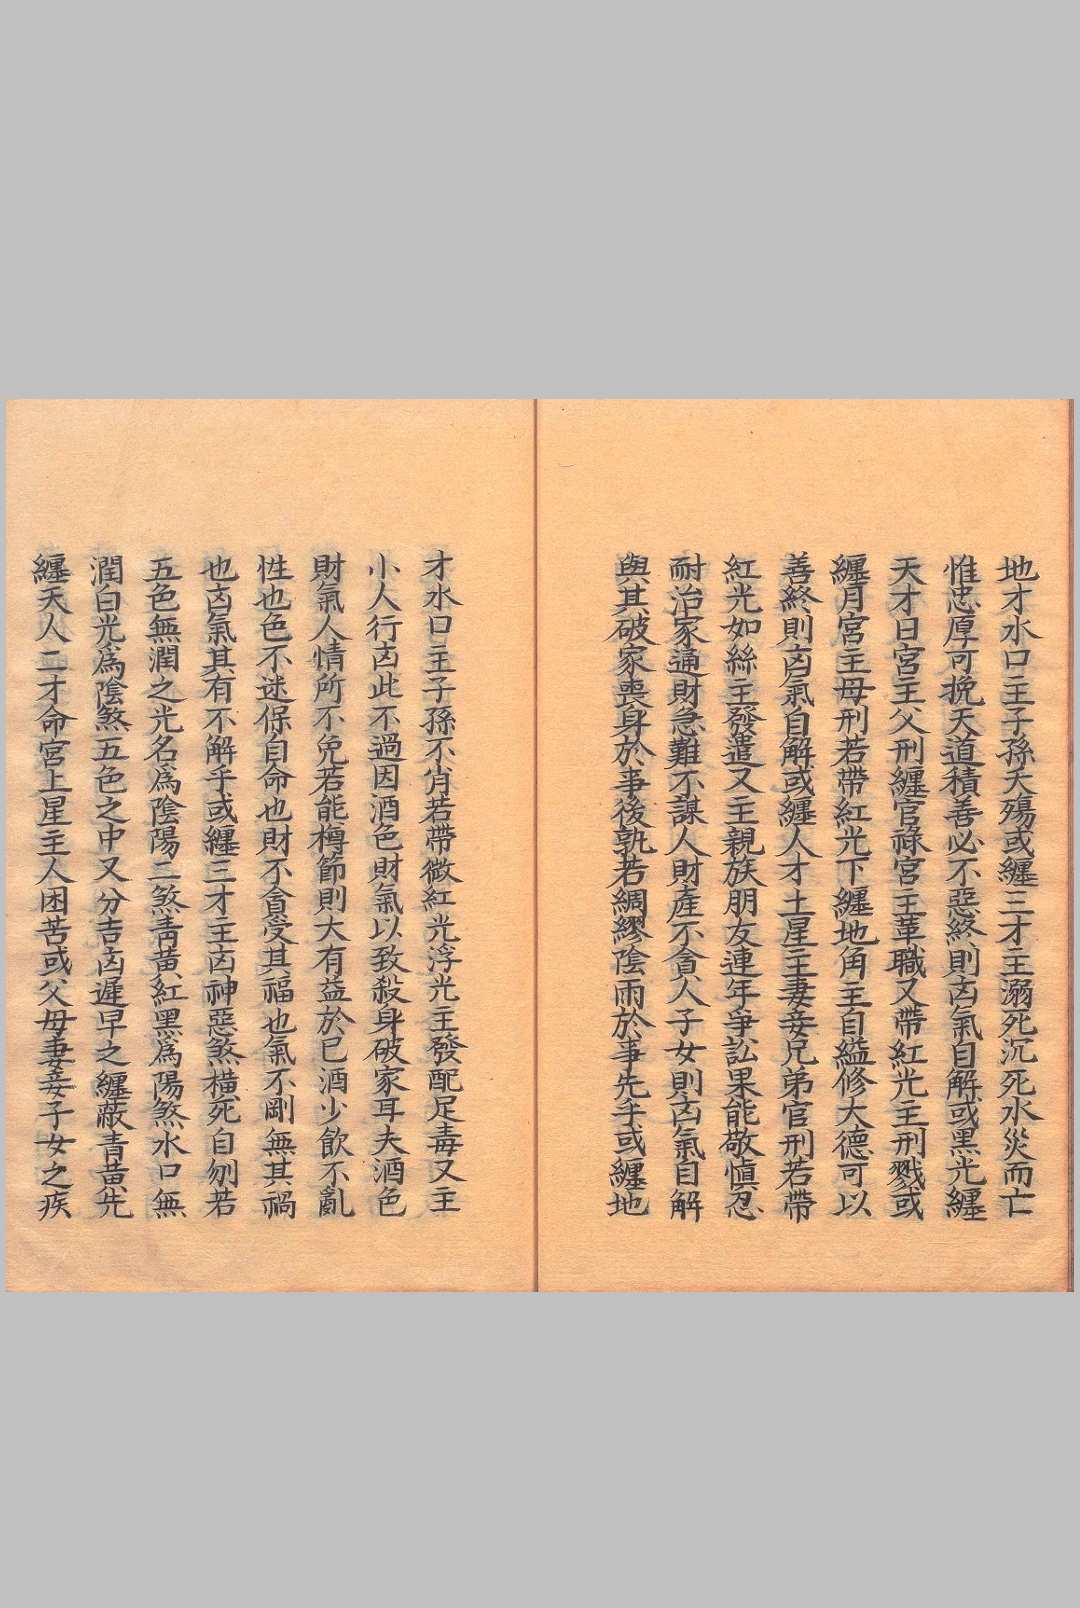 地才水口主子孫夭殤或纏三才主溺死沉死水災而亡
惟忠厚可挽天道積善必不惡終則㐫氣自解或黑光纏
天才日宮主父刑纏官祿宮主革職又帶紅光主刑戮或
纏月宮主母刑若帶紅光下纏地角主自縊修大德可以
善終則㐫氣自解或纏人才土星主妻妾兄弟官刑若帶
紅光如絲主發遣又主親族朋友連年爭訟果能敬慎忍
耐治家通財急難不謀人財產不貪人子女則㐫氣自解
與其破家喪身於事後孰若綢繆陰雨於事先乎或纏地
才水口主子孫不肖若帶微紅光浮光主發配足毒又主
小人行㐫此不過因酒色財氣以致殺身破家耳夫酒色
財氣人情所不免若能樽節則大有益於已酒少飲不亂
性也色不迷保自命也財不貪受其福也氣不剛無其禍
也㐫氣其有不解乎或纏三才主㐫神惡煞橫死自刎若
五色無潤之光名爲陰陽二煞青黃紅黑爲陽煞水口無
潤白光爲陰煞五色之中又分吉㐫遲早之纏蔽青黃光
纏天人二才命宮土星主人困苦或父母妻妾子女之疾